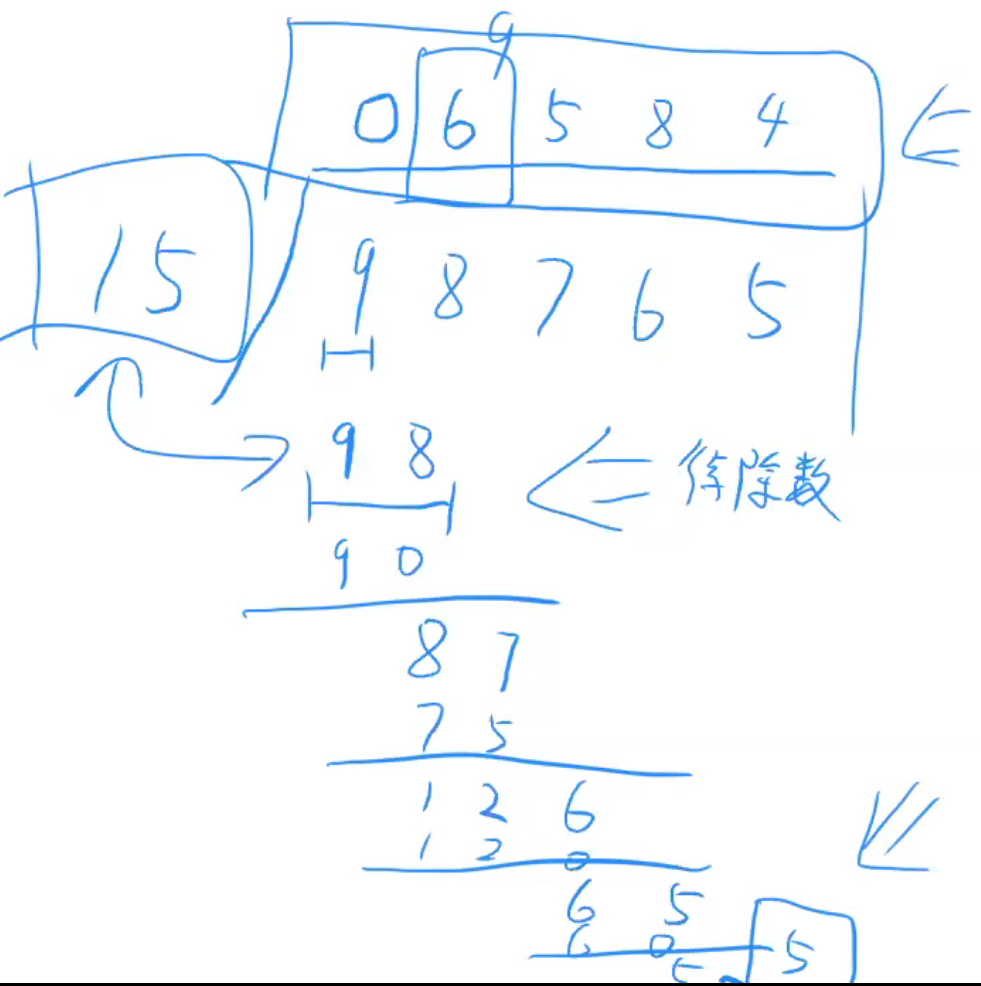 9
0 6 5 8 4
15
9 8 7 6 5
9 8 待除数
9 0
8 7
7 5
1 2 6
1 2 0
6 5
6 0
5 5